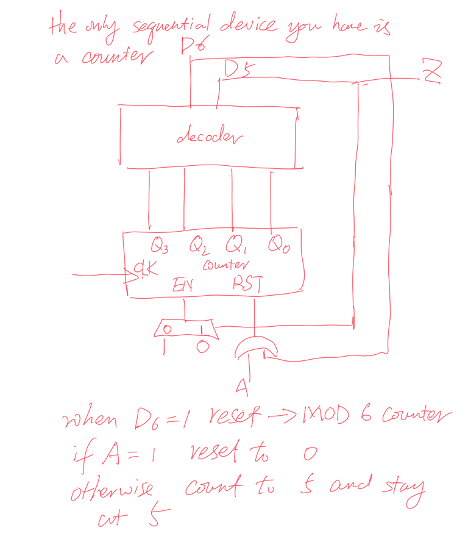 the only sequential device you have is
a counter D6
D5
Z
decoder
Q3 Q2 Q1 Q0
CLK counter
EN RST
0 1
1 0
A
when D6=1 reset → MOD 6 counter
if A=1 reset to 0
otherwise count to 5 and stay
at 5